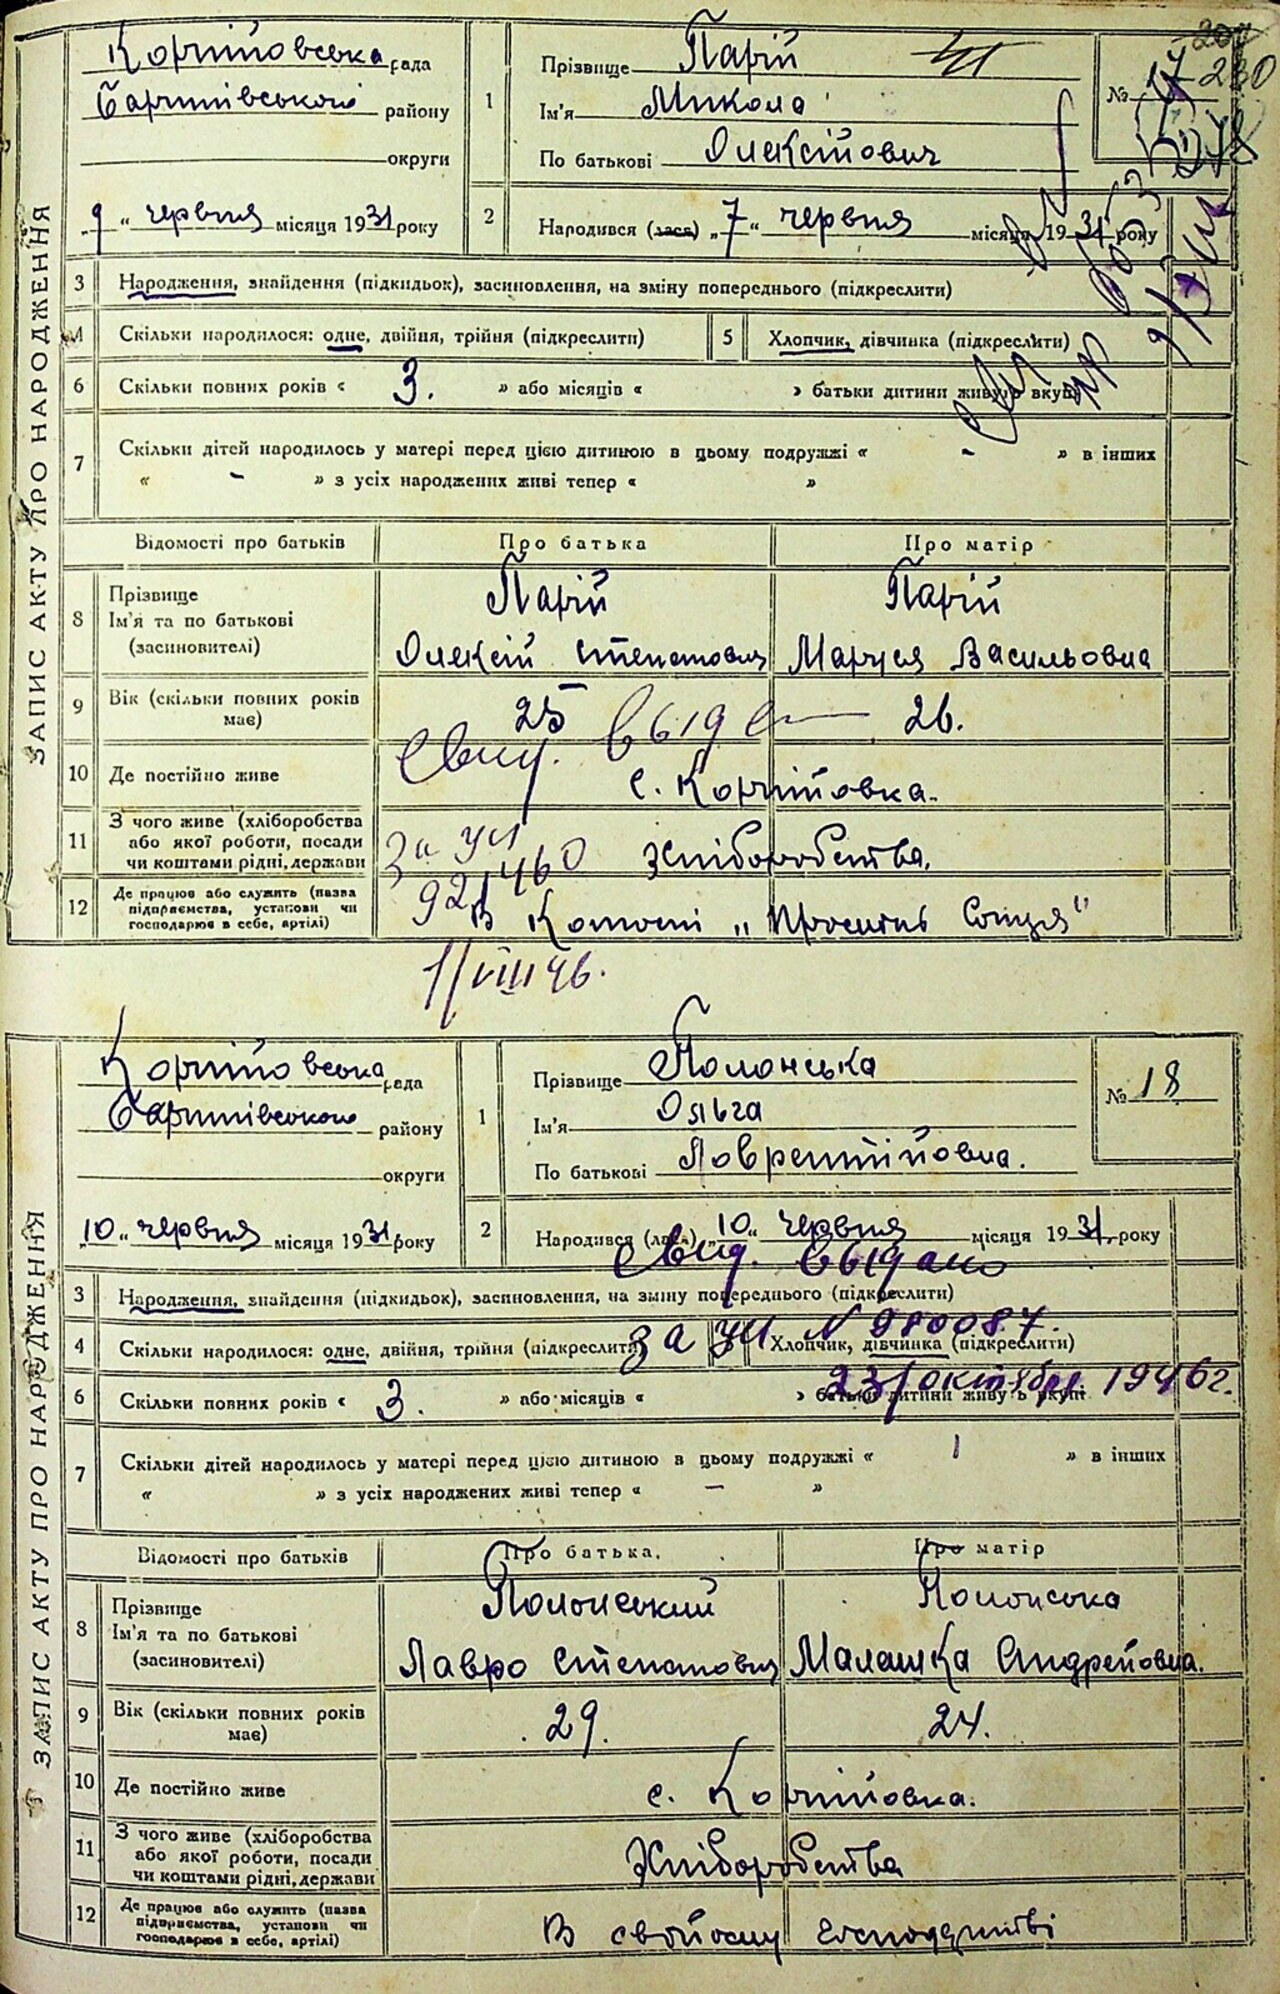 ЗАПИС АКТУ ПРО НАРОДЖЕННЯ
рада
району
округи
„9“ червня місяця 1931 року
1
Прізвище Парій
Ім'я Микола
По батькові Олексійович
№ 17
230
2
Народився (лася) „7“ червня місяця 1931 року
3 Народження, знайдення (підкидьок), засиновлення, на зміну попереднього (підкреслити)
4 Скільки народилося: одне, двійня, трійня (підкреслити) 5 Хлопчик, дівчинка (підкреслити)
6 Скільки повних років « 3. » або місяців « » батьки дитини живуть вкупі
7 Скільки дітей народилось у матері перед цією дитиною в цьому подружжі « - » в інших
« - » з усіх народжених живі тепер « »
Відомості про батьків Про батька Про матір
8 Прізвище
Ім'я та по батькові
(засиновителі)
Парій Парій
Олексій Степанович Маруся Васильовна
9 Вік (скільки повних років має) 25 26.
Свид.
10 Де постійно живе с.
11 З чого живе (хліборобства
або якої роботи, посади
чи коштами рідні, держави
Хліборобства.
За УЛ
12 Де працює або служить (назва
підприємства, установи чи
господарює в себе, артілі)
В
1/VIII 46.
ЗАПИС АКТУ ПРО НАРОДЖЕННЯ
рада
району
округи
„10“ червня місяця 1931 року
1
Прізвище Полонська
Ім'я Ольга
По батькові Лаврентійовна.
№ 18
2
Народився (лася) „10“ червня місяця 1931 року
Свид. выдано
3 Народження, знайдення (підкидьок), засиновлення, на зміну попереднього (підкреслити)
за УЛ № 980087.
4 Скільки народилося: одне, двійня, трійня (підкреслити) Хлопчик, дівчинка (підкреслити)
23/октября 1946 г.
6 Скільки повних років « 3. » або місяців « » батьки дитини живуть вкупі
7 Скільки дітей народилось у матері перед цією дитиною в цьому подружжі « 1 » в інших
« » з усіх народжених живі тепер « — »
Відомості про батьків Про батька Про матір
8 Прізвище
Ім'я та по батькові
(засиновителі)
Полонський Полонська
Лавро Степанович Малашка Андрейовна.
9 Вік (скільки повних років має) 29. 24.
10 Де постійно живе с.
11 З чого живе (хліборобства
або якої роботи, посади
чи коштами рідні, держави
Хліборобства
12 Де працює або служить (назва
підприємства, установи чи
господарює в себе, артілі)
В свойому господарстві